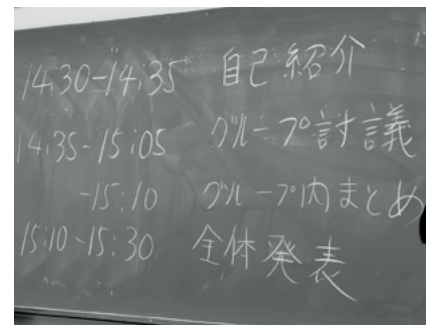 14:30-14:35 自己紹介
14:35-15:05 グループ討議
-15:10 グループ内まとめ
15:10-15:30 全体発表